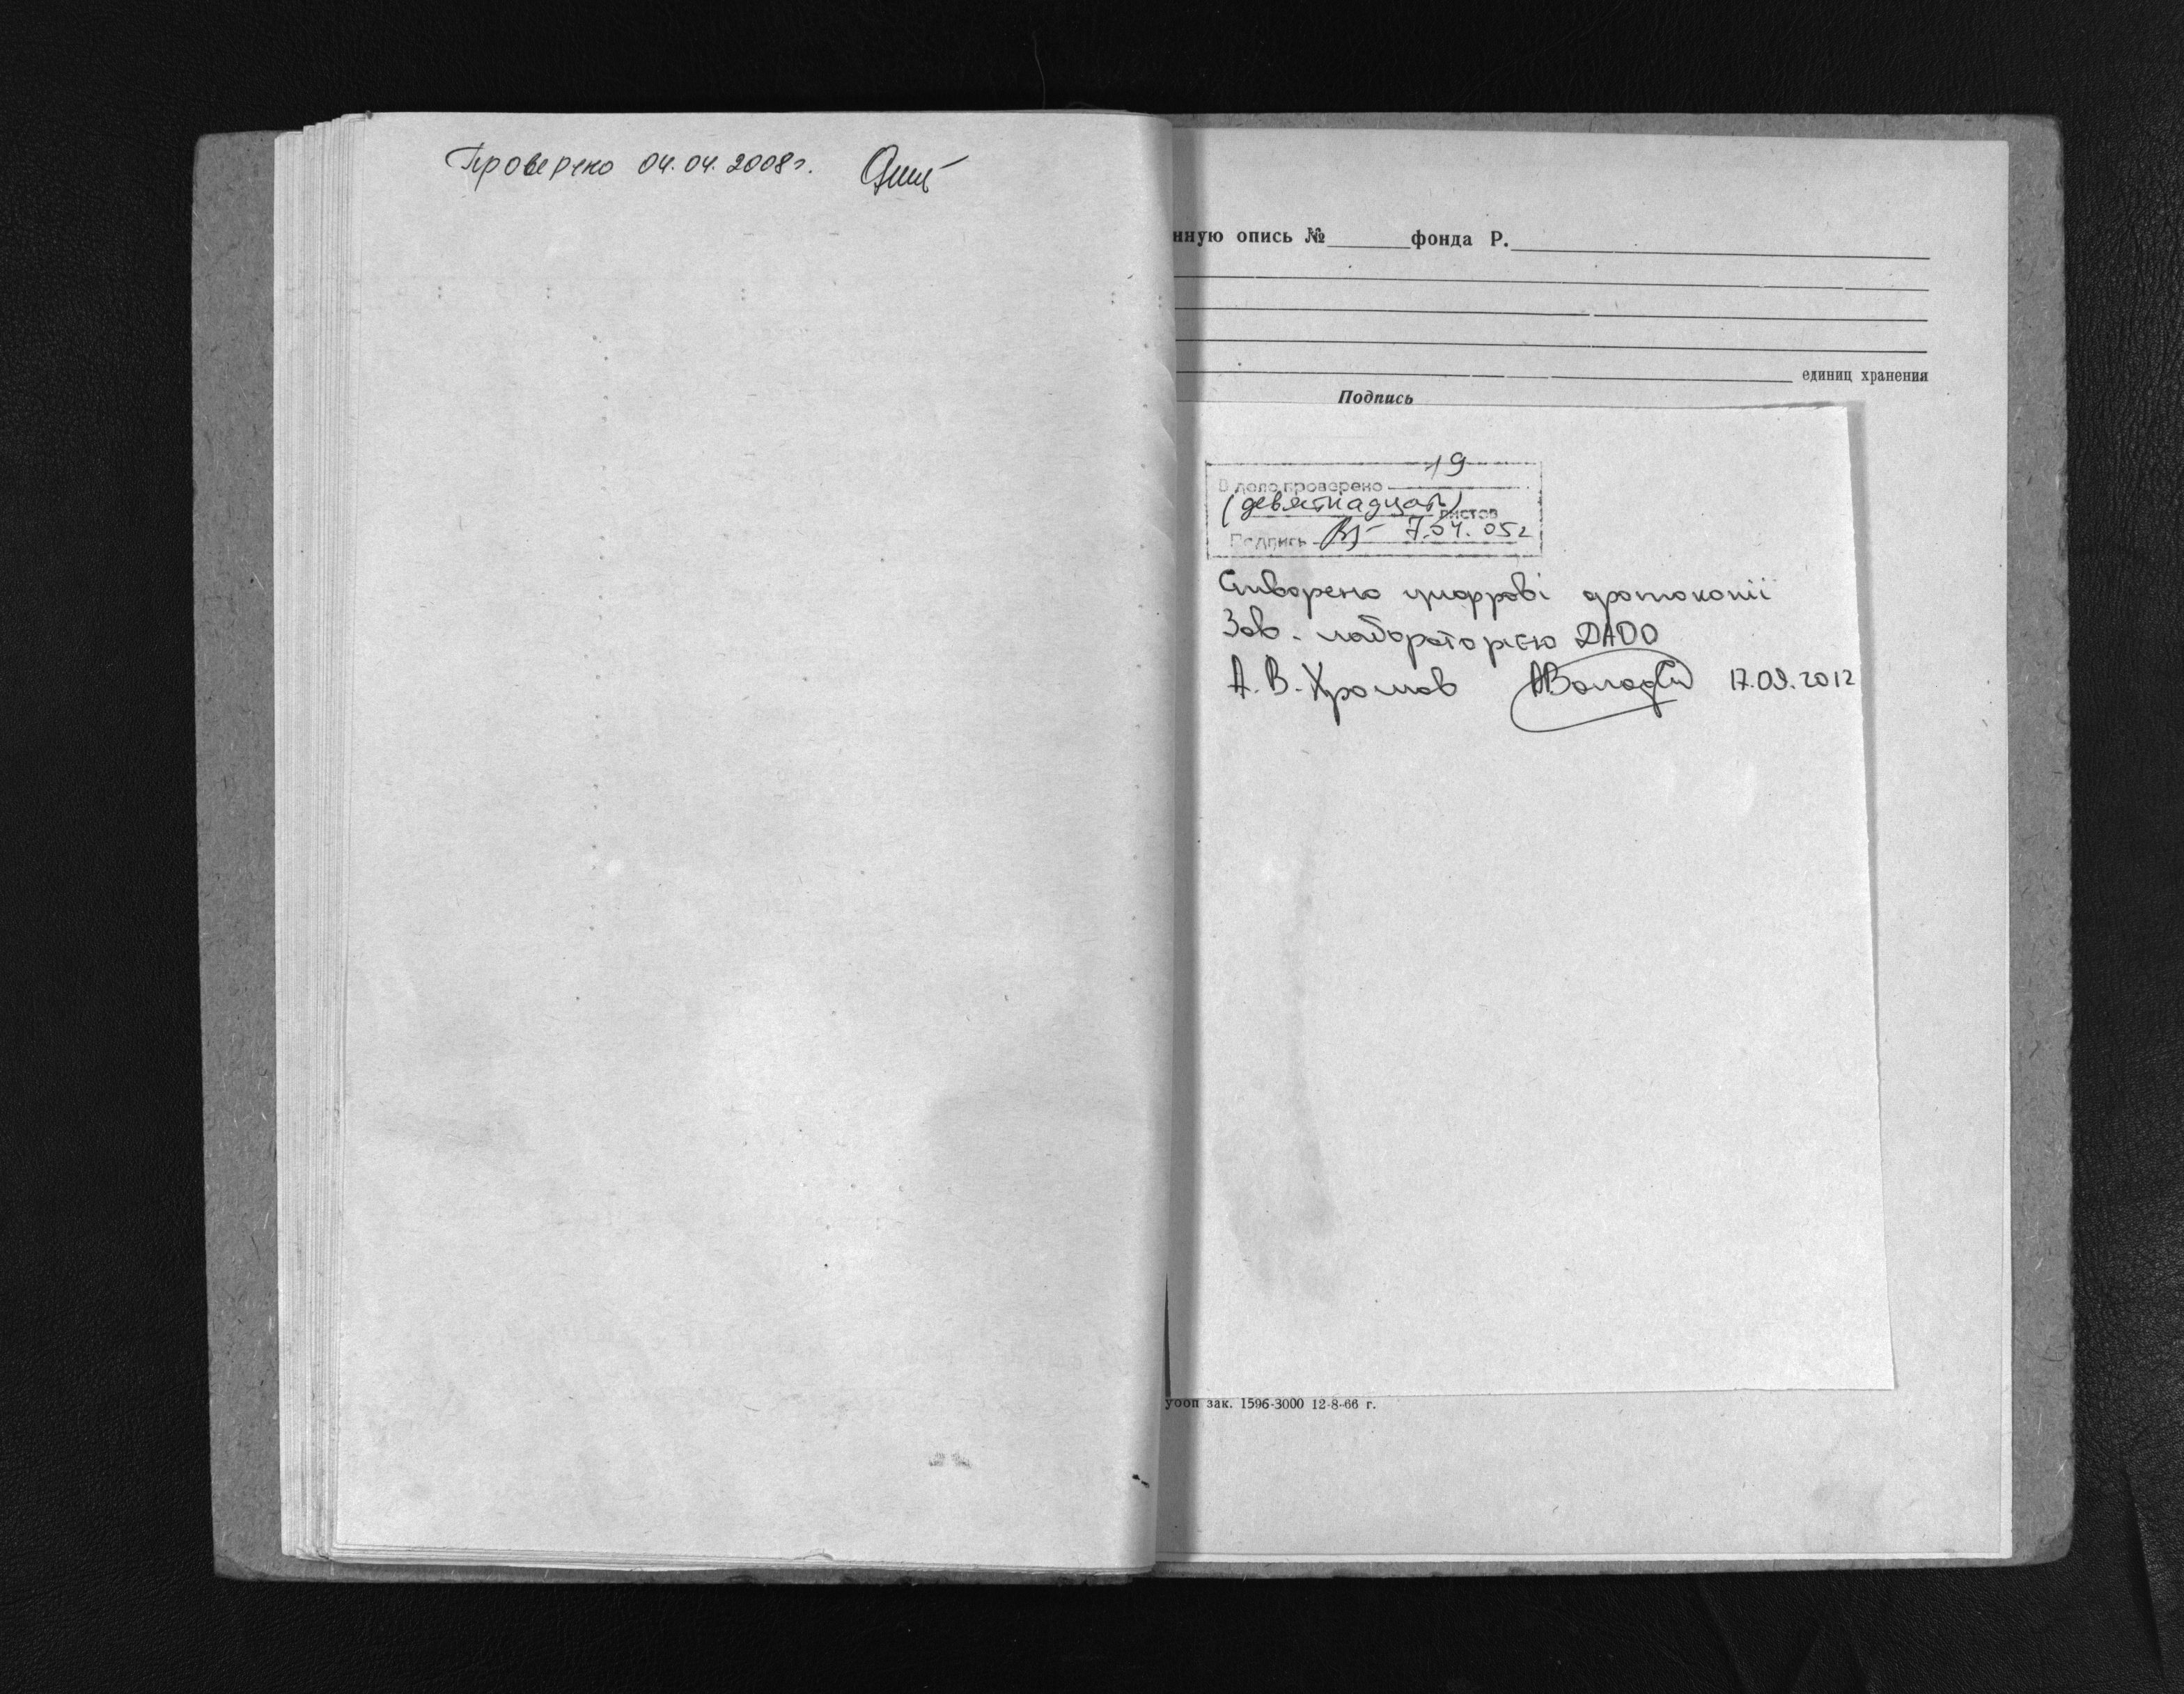 Проверено 04.04.2008г.
нную опись № фонда Р.
единиц хранения
Подпись
19
В деле проверено
(девятнадцать) листов
Подпись 7.04.05г
Створено цифрові фотокопії
Зав. лабораторією ДАДО
А.В. Хромов 17.09.2012
уооп зак. 1596-3000 12-8-66 г.